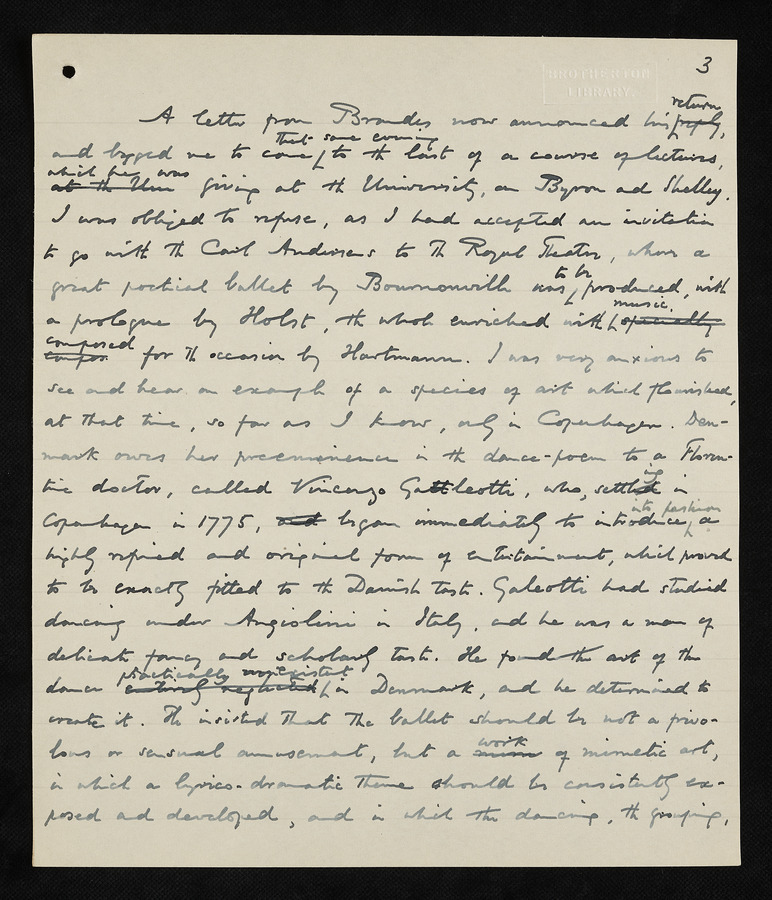 BROTHERTON
LIBRARY.
3
return
A letter from Brandes now announced his reply,
that same evening
and begged me to come to the last of a course of lectures,
which he was
at the Univ giving at the University, on Byron and Shelley.
I was obliged to refuse, as I had accepted an invitation
to go with the Carl Andersens to the Royal Theatre, where a
to be
great poetical ballet by Bournonville was produced, with
music
a prologue by Holst, the whole enriched with specially
composed
compos for the occasion by Hartmann. I was very anxious to
see and hear an example of a species of art which flourished,
at that time, so far as I know, only in Copenhagen. Den-
mark owes her preeminence in the dance-poem to a Floren-
ing
tine doctor, called Vincenzo Galeotti, who, settled in
into fashion
Copenhagen in 1775, and began immediately to introduce, a
highly refined and original form of entertainment, which proved
to be exactly fitted to the Danish taste. Galeotti had studied
dancing under Angiolini in Italy, and he was a man of
delicate fancy and scholarly taste. He found the art of the
practically non-existent
dance entirely neglected in Denmark, and he determined to
create it. He insisted that the ballet should be not a frivo-
work
lous or sensual amusement, but a of mimetic art,
in which a lyrico-dramatic theme should be consistently ex-
posed and developed, and in which the dancing, the grouping,